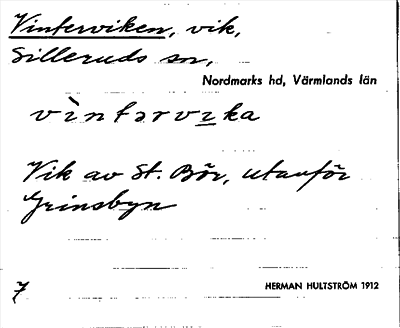 Vinterviken, vik,
Silleruds sn,
Nordmarks hd, Värmlands län
vìntərvɩka
Vik av St. Bör, utanför
Grinsbyn
7 HERMAN HULTSTRÖM 1912